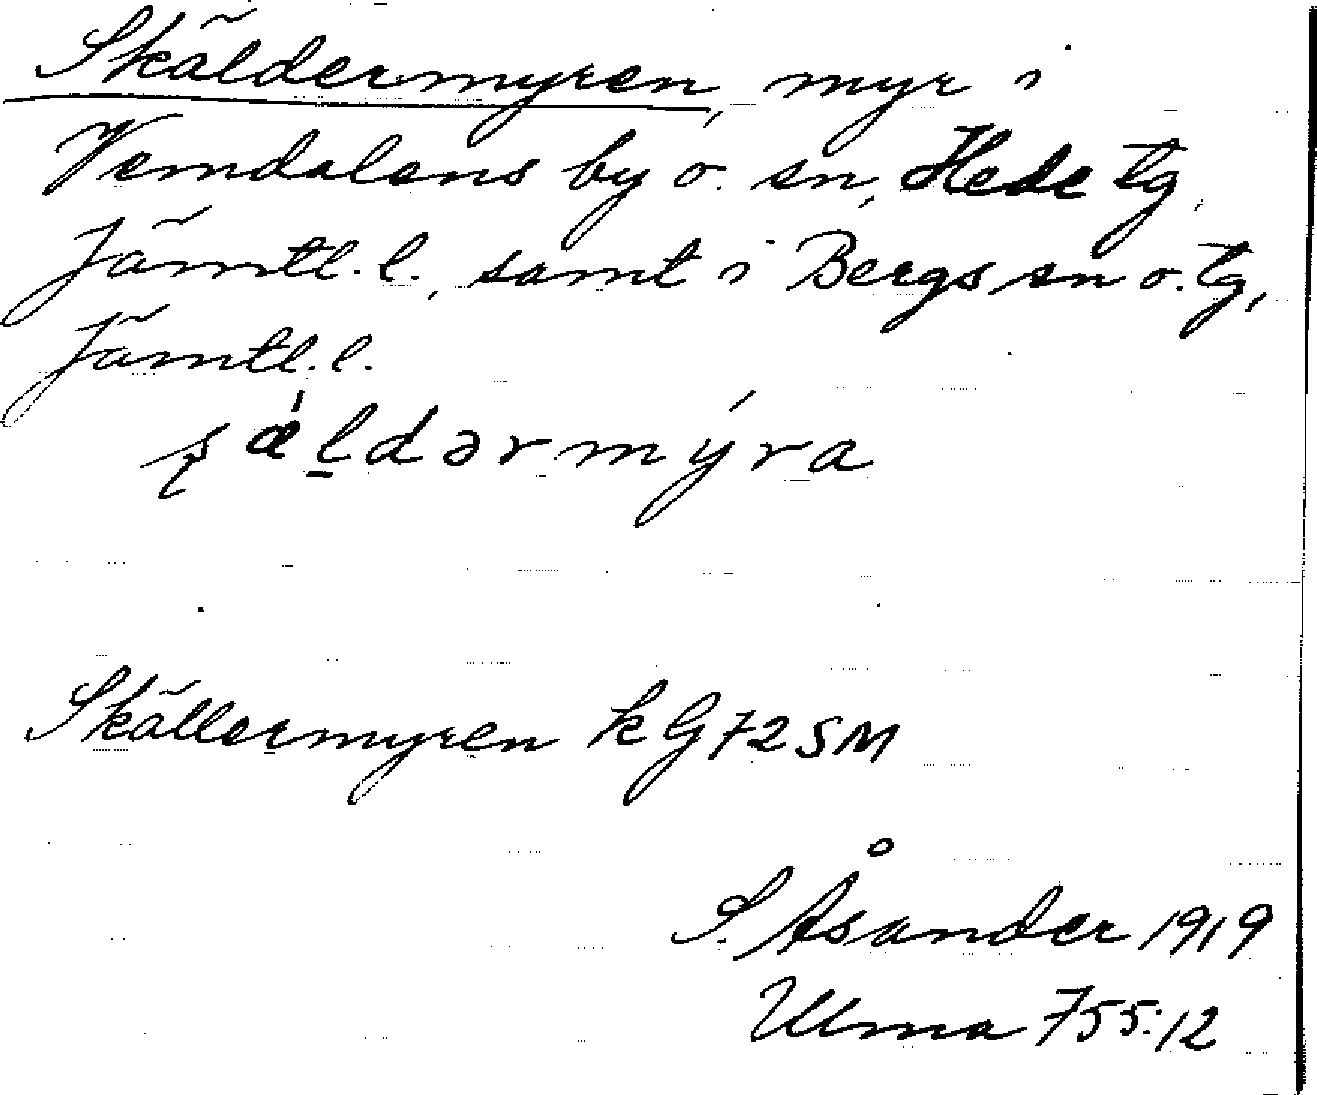 Skäldermyren, myr i
Vemdalens by o. sn, Hede tg,
Jämtl. l., samt i Bergs sn o. tg,
Jämtl. l.
ʂæ̀l̠dərmýra
Skällermyren k G 72 SM
S. Åsander 1919
Ulma 755:12